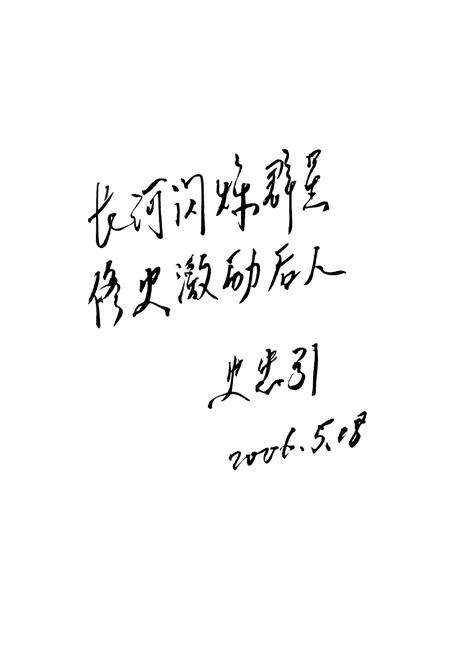 长河闪烁群星
修史激励后人
史忠引
2006.5.18